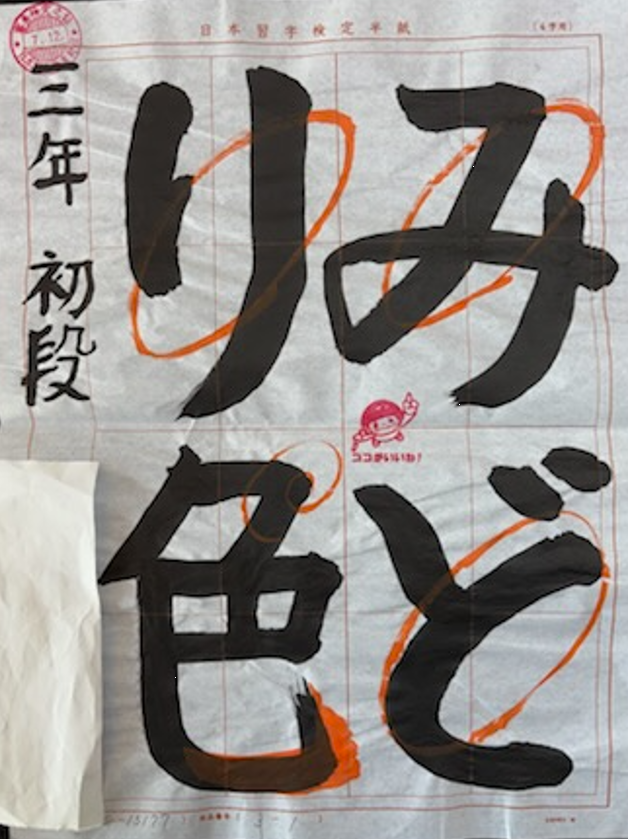 日本習字検定半紙
みど
り色
三年 初段
7.12.
ココがいいね!